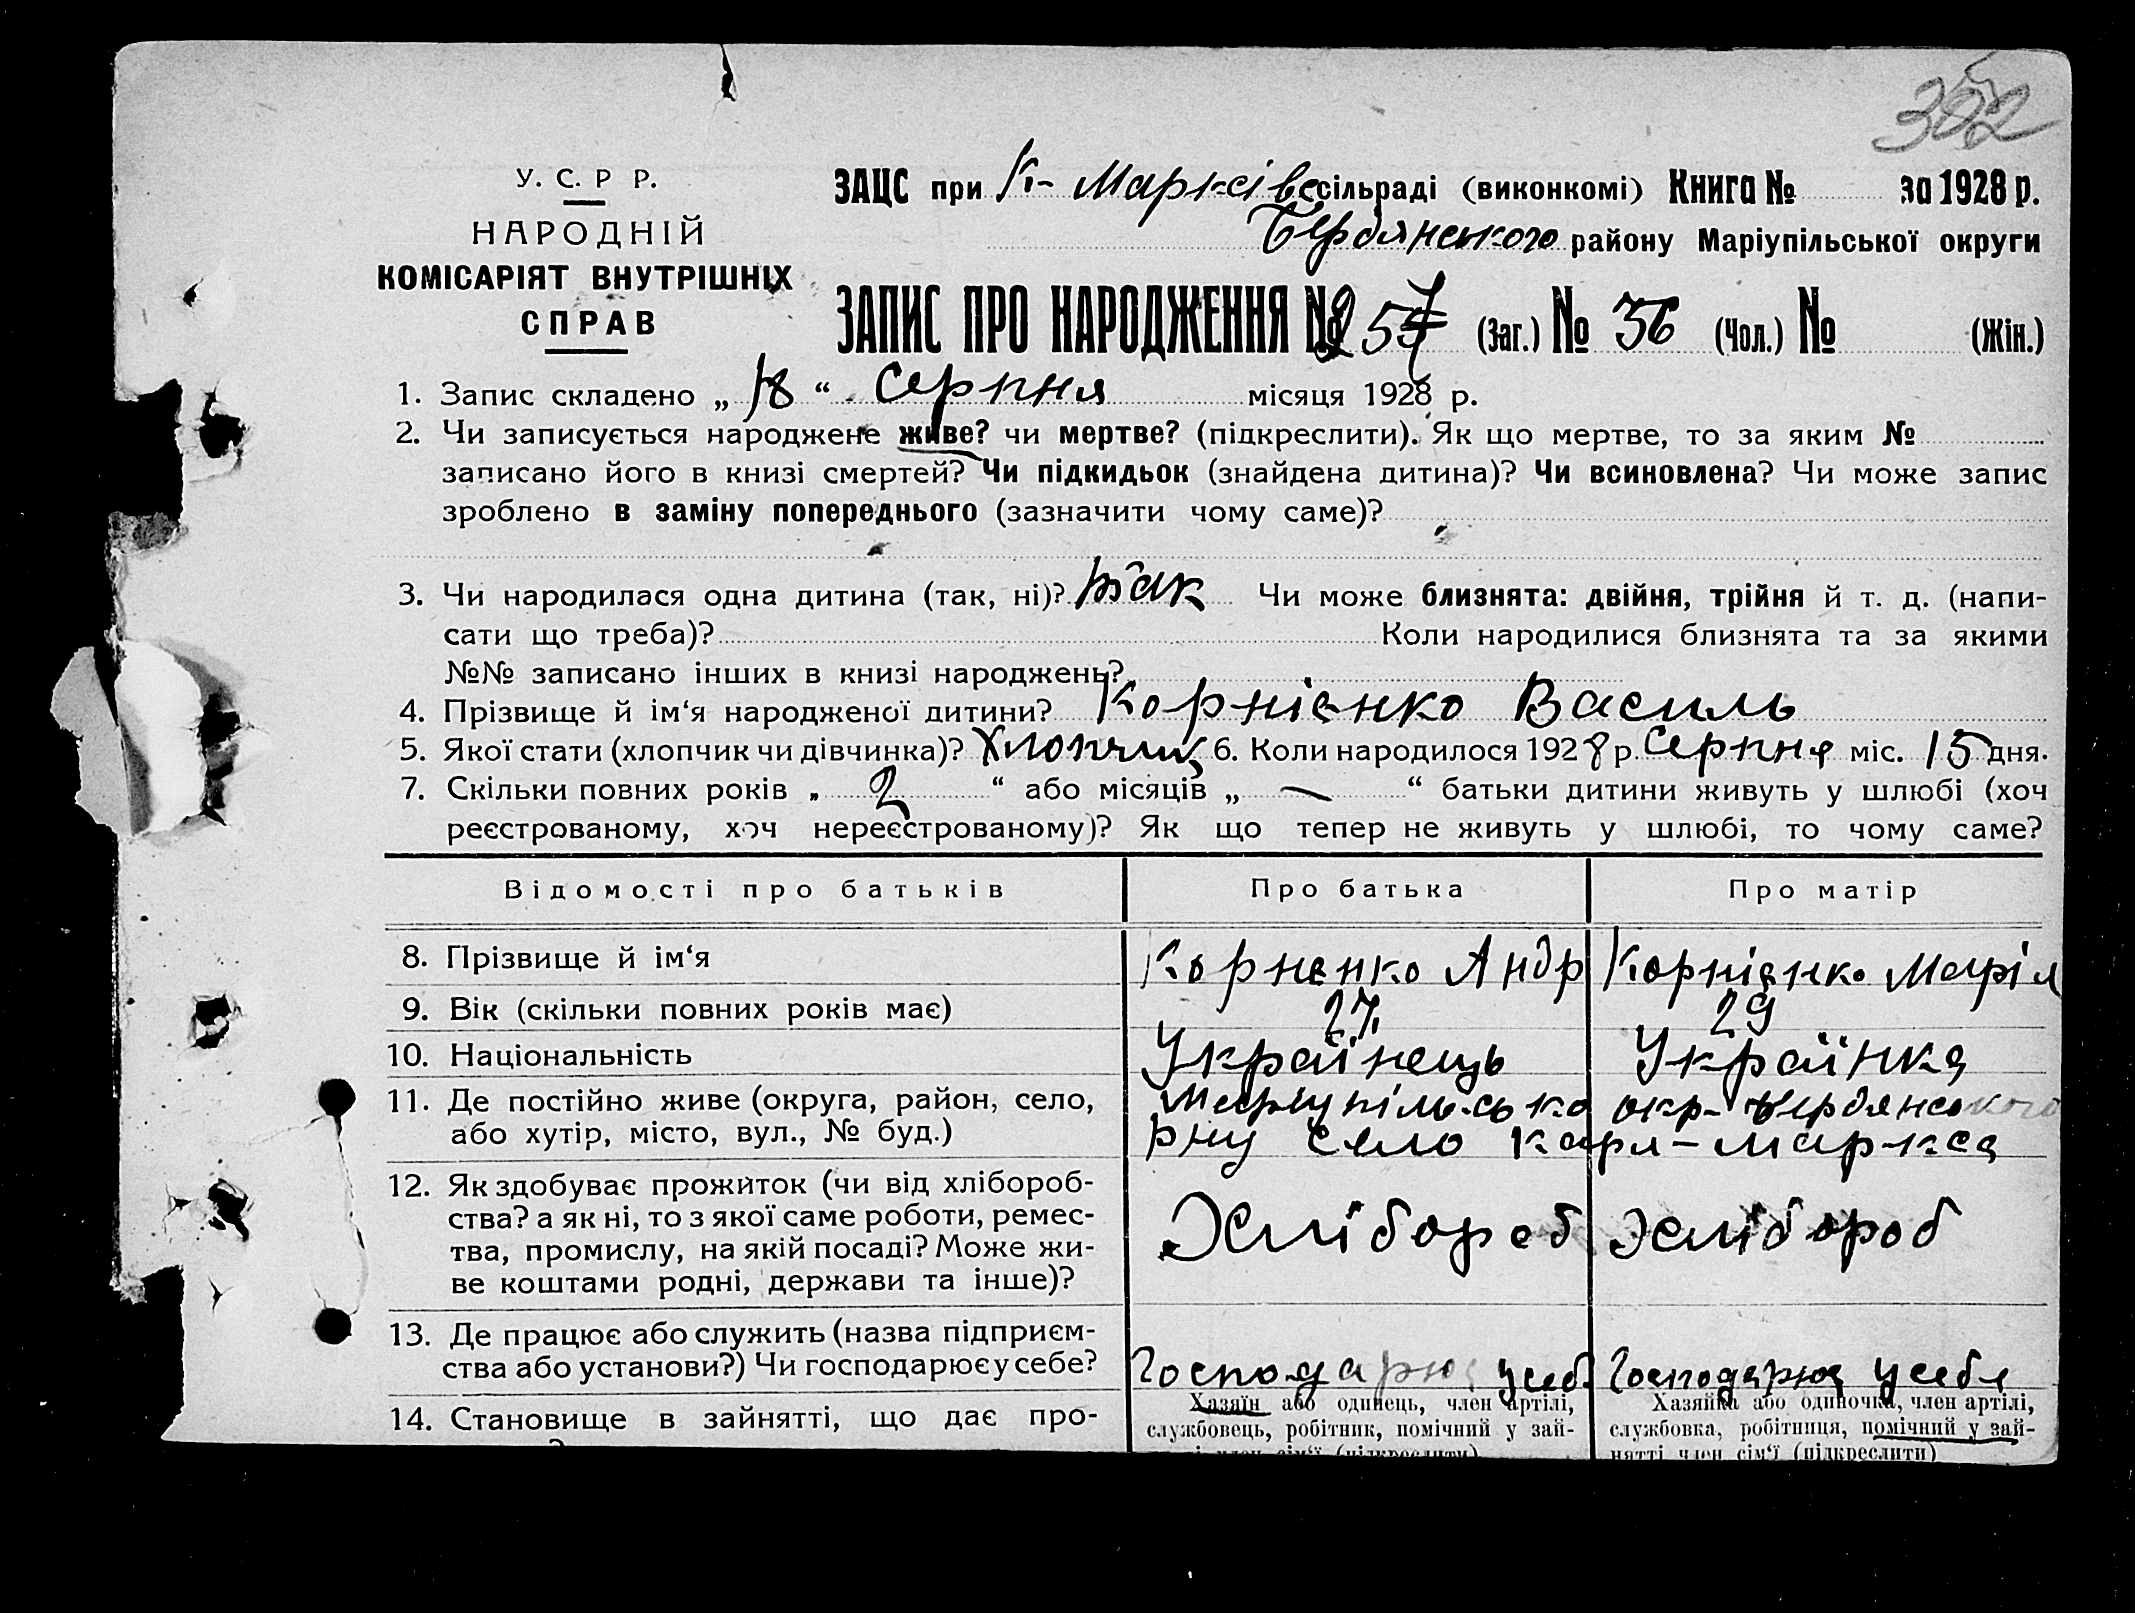 352
У. С. Р Р.
НАРОДНІЙ
КОМІСАРІЯТ ВНУТРІШНІХ
СПРАВ
ЗАЦС при К-Марксівс сільраді (виконкомі) Книга № за 1928 р.
Бердянського району Маріупільської округи
ЗАПИС ПРО НАРОДЖЕННЯ № 257 (Заг.) № 36 (Чол.) № (Жін.)
1. Запис складено „ 18 “ Серпня місяця 1928 р.
2. Чи записується народжене живе? чи мертве? (підкреслити). Як що мертве, то за яким №
записано його в книзі смертей? Чи підкидьок (знайдена дитина)? Чи всиновлена? Чи може запис
зроблено в заміну попереднього (зазначити чому саме)?
3. Чи народилася одна дитина (так, ні)? так Чи може близнята: двійня, трійня й т. д. (напи-
сати що треба)? Коли народилися близнята та за якими
№№ записано інших в книзі народжень?
4. Прізвище й ім‘я народженої дитини? Корнієнко Василь
5. Якої стати (хлопчик чи дівчинка)? Хлопчик 6. Коли народилося 1928 р. Серпня міс. 15 дня.
7. Скільки повних років „ 2 “ або місяців „ — “ батьки дитини живуть у шлюбі (хоч
реєстрованому, хоч нереєстрованому)? Як що тепер не живуть у шлюбі, то чому саме?
Відомості про батьків Про батька Про матір
8. Прізвище й ім‘я Корненко Андр Корнієнко Марія
9. Вік (скільки повних років має) 27 29
10. Національність Українець Українка
11. Де постійно живе (округа, район, село, Маріупільсько окр- Бердянського
або хутір, місто, вул., № буд.) рну село Карл-Маркса
12. Як здобуває прожиток (чи від хлібороб-
ства? а як ні, то з якої саме роботи, ремес-
тва, промислу, на якій посаді? Може жи-
ве коштами родні, держави та інше)?
Хлібороб Хлібороб
13. Де працює або служить (назва підприєм-
ства або установи?) Чи господарює у себе? Господарює усеб. Господарює усебе
14. Становище в зайнятті, що дає про-
Хазяїн або одинець, член артілі,
службовець, робітник, помічний у зай-
Хазяйка або одиночка, член артілі,
службовка, робітниця, помічний у зай-
нятті член сім‘ї (підкреслити)